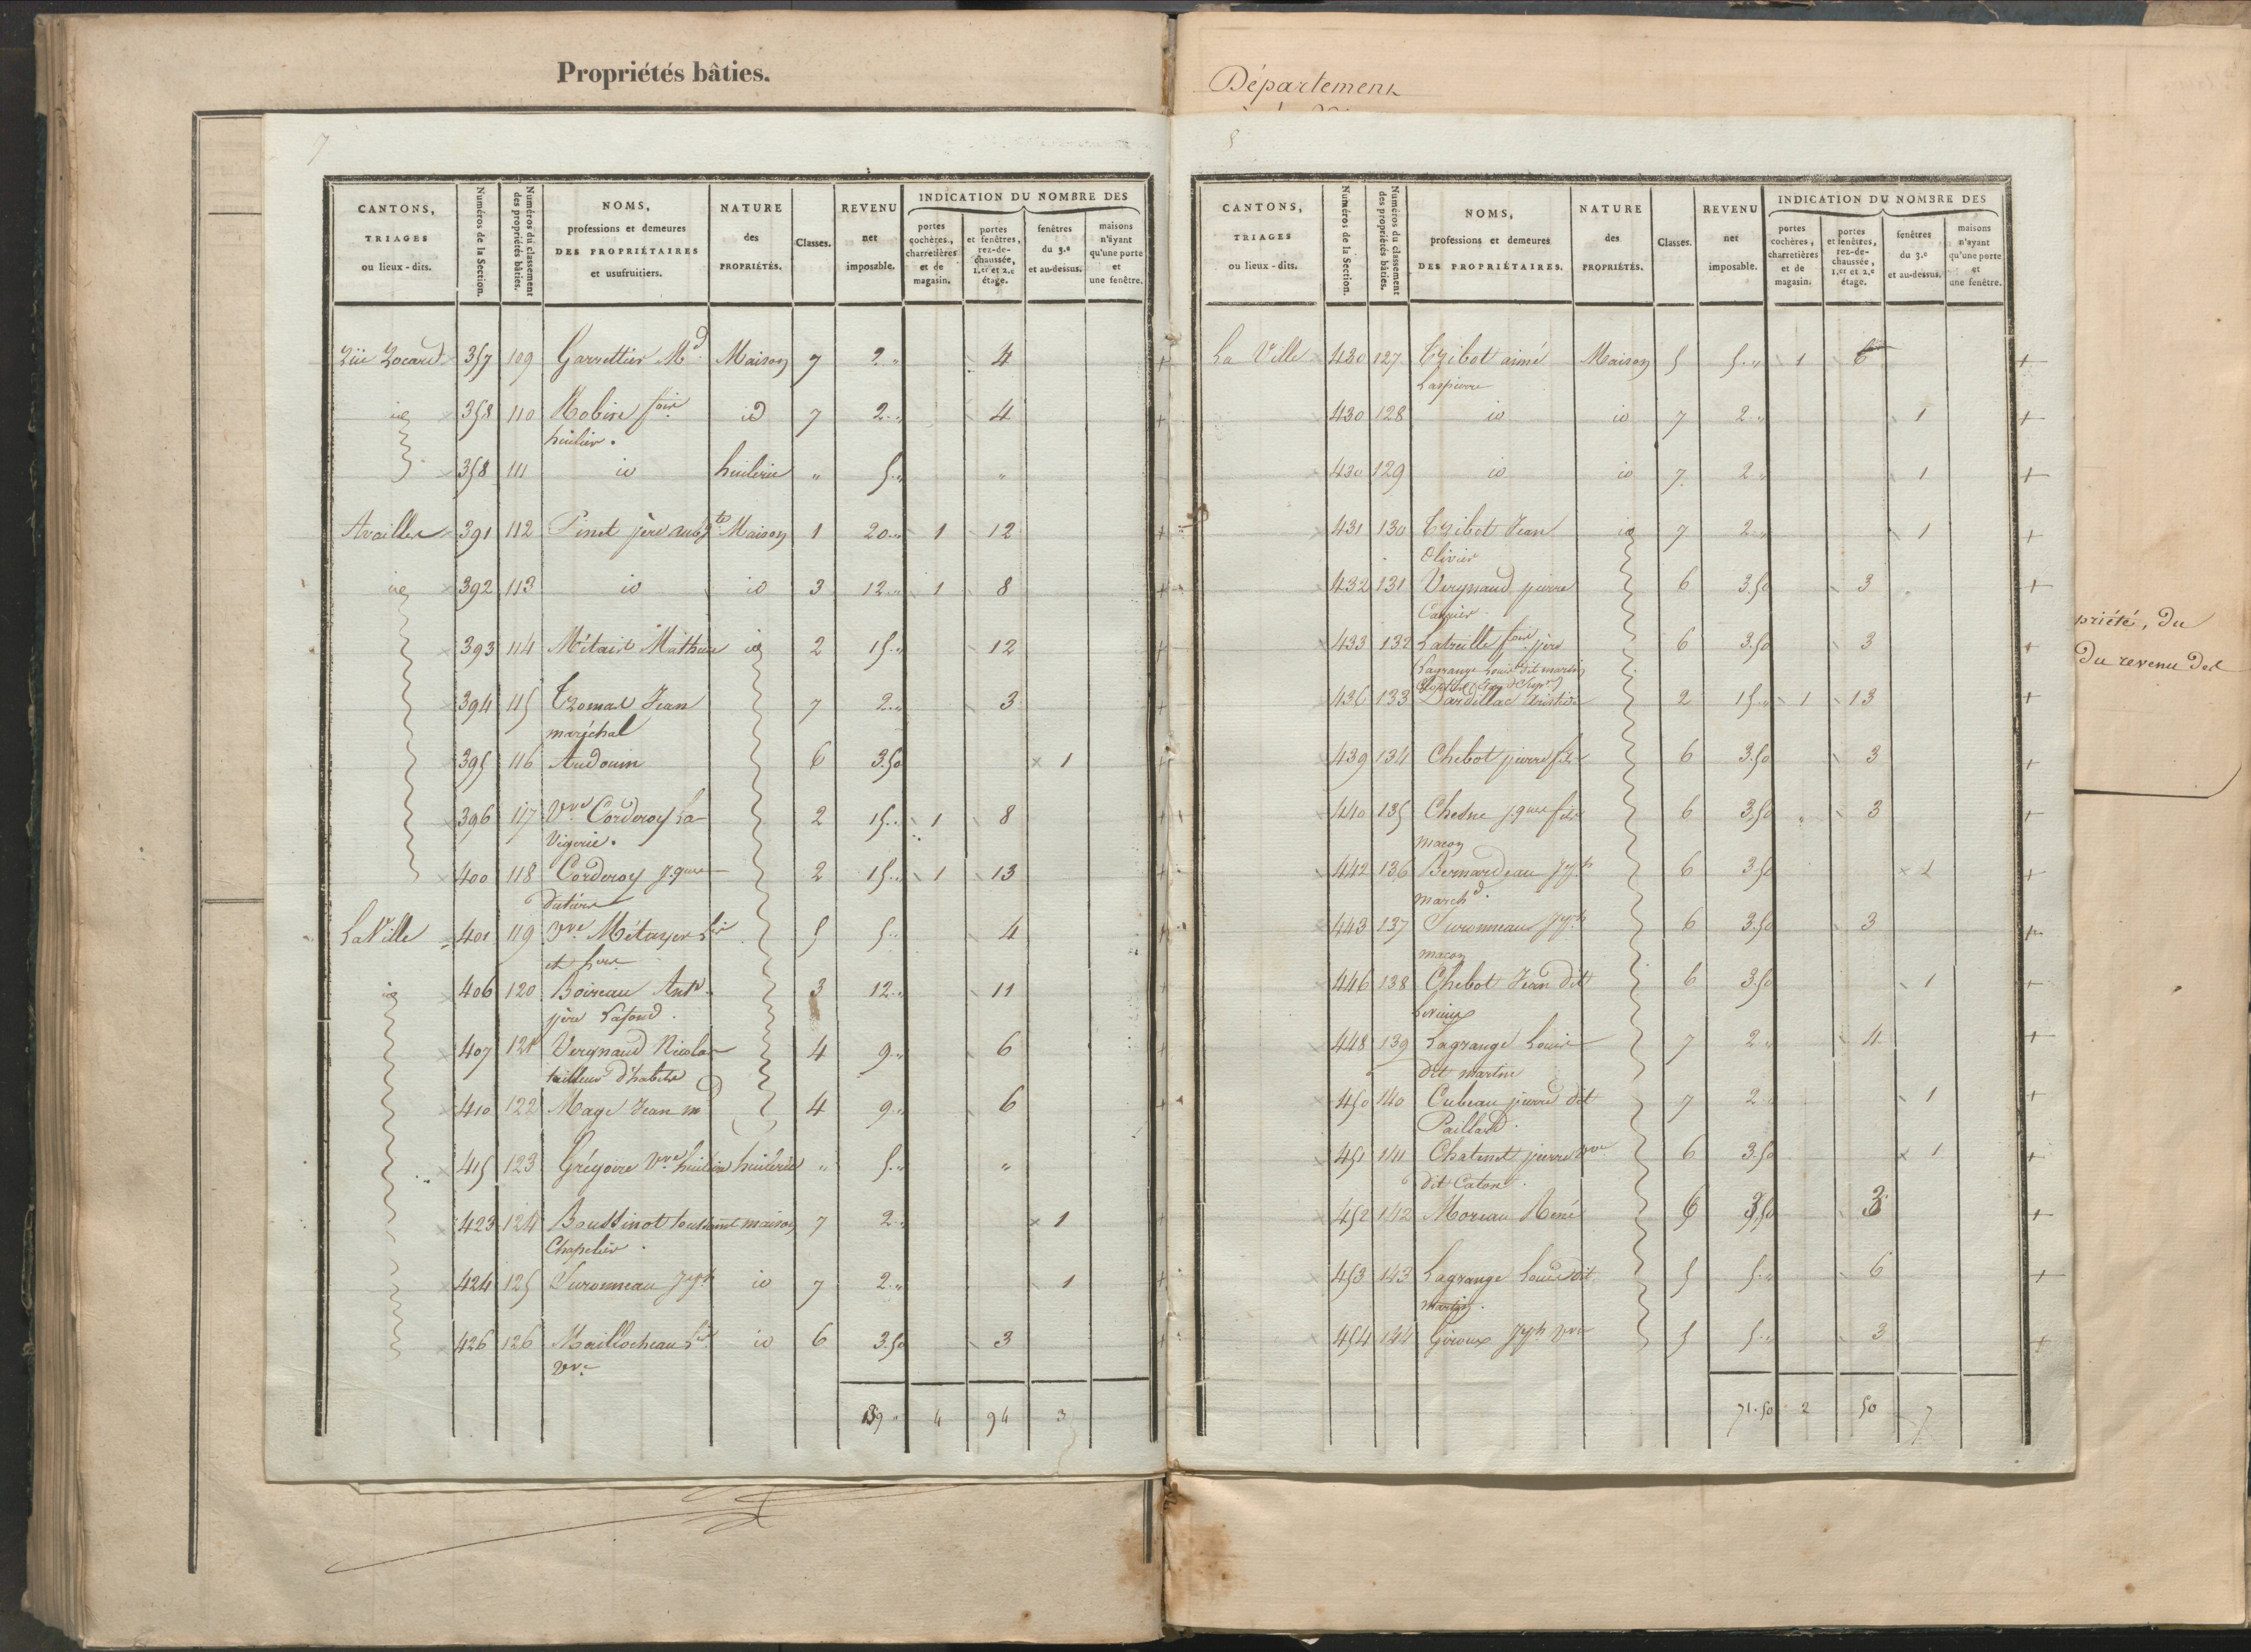 Propriétés bâties.
7
CANTONS, TRIAGES ou lieux-dits. Numéros de la Section. Numéros du classement des propriétés bâties. NOMS, professions et demeures DES PROPRIÉTAIRES et usufruitiers. NATURE des PROPRIÉTÉS. Classes. REVENU net imposable. INDICATION DU NOMBRE DES portes cochères, charretières et de magasin. portes et fenêtres, rez-de-chaussée, 1.er et 2.e étage. fenêtres du 3.e et au-dessus. maisons n'ayant qu'une porte et une fenêtre.
357 109 Garrettier Md Maison 7 2 " 4
id 358 110 Robin fois id 7 2 " 4
huilier.
358 111 id huilerie " 5 " "
Availles 391 112 Pinet père Maison 1 20 " 1 12
id 392 113 id id 3 12 " 1 8
393 114 Métais Mathieu id 2 15 " 12
394 115 Jean 7 2 " 3
maréchal
395 116 Audouin 6 3.50 1
396 117 Vve Corderoy La 2 15 " 1 8
Vigerie.
400 118 Corderoy jques 2 15 " 1 13
La Ville 401 119 Vve Métayer 5 5 " 4
406 120 Boireau Ante 3 12 " 11
père Lafond.
407 121 Vergnaud Nicolas 4 9 " 6
tailleur d'habits
410 122 Mage Jean md 4 9 " 6
415 123 Grégoire Vve huilier huilerie " 5 " "
423 124 Boussinot toussaint maison 7 2 " 1
Chapelier.
424 125 Suronneau Jph id 7 2 " 1
426 126 Maillocheau id 6 3.50 3
Vve
139 " 4 94 3
Département
8
CANTONS, TRIAGES ou lieux-dits. Numéros de la Section. Numéros du classement des propriétés bâties. NOMS, professions et demeures DES PROPRIÉTAIRES. NATURE des PROPRIÉTÉS. Classes. REVENU net imposable. INDICATION DU NOMBRE DES portes cochères, charretières et de magasin. portes et fenêtres, rez-de-chaussée, 1.er et 2.e étage. fenêtres du 3.e et au-dessus. maisons n'ayant qu'une porte et une fenêtre.
La Ville 430 127 aimé Maison 5 5 " 1 6
Laspierre
430 128 id id 7 2 " 1
430 129 id id 7 2 " 1
431 130 Jean id 7 2 " 1
Olivier
432 131 Vergnaud pierre 6 3.50 3
433 132 Latreille fois père 6 3.50 3
Lagrange Louis dit martin
436 133 Dardillac Aristide 2 15 " 1 13
439 134 Chebot pierre fils 6 3.50 3
440 135 Chesne jques fils 6 3.50 " 3
macon
442 136 Bernardeau Jph 6 3.50 1
marchd.
443 137 Suronneau Jph 6 3.50 3
macon
446 138 Chebot Jean dit 6 3.50 1
448 139 Lagrange Louis 7 2 " 4
dit martin
450 140 Cubeau pierre dit 7 2 " 1
Paillard.
451 141 Chatenet pierre Vve 6 3.50 1
dit Caton.
452 142 Moreau René 6 3.50 3
453 143 Lagrange Louis dit 5 5 " 6
martin.
454 144 Giroux Jph Vve 5 5 " 3
71.50 2 50 7
priété, du
du revenu des